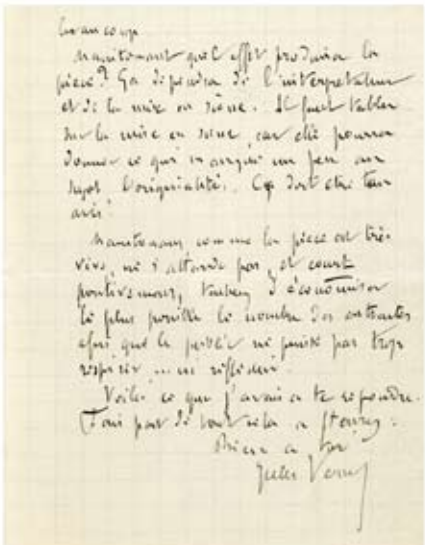 beaucoup
Maintenant quel effet produira la
pièce? Ça dépendra de l'interprétation
et de la mise en scène. Il faut tabler
sur la mise en scène, car elle pourra
donner ce qui manque un peu au
sujet, l'originalité. Ça doit être ton
avis.
Maintenant, comme la pièce est très
vive, ne s'attarde pas, et court
positivement, tachez d'économiser
le plus possible le nombre des entractes
afin que le public ne puisse pas trop
respirer ... ni réfléchir.
Voilà ce que j'avais à te répondre.
Fais part de tout cela à
Bien à toi
Jules Verne